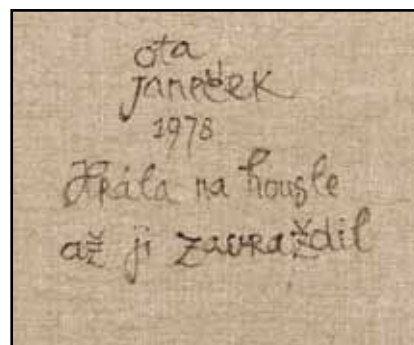 ota
Janeček
1978
Hrála na housle
až ji zavraždil